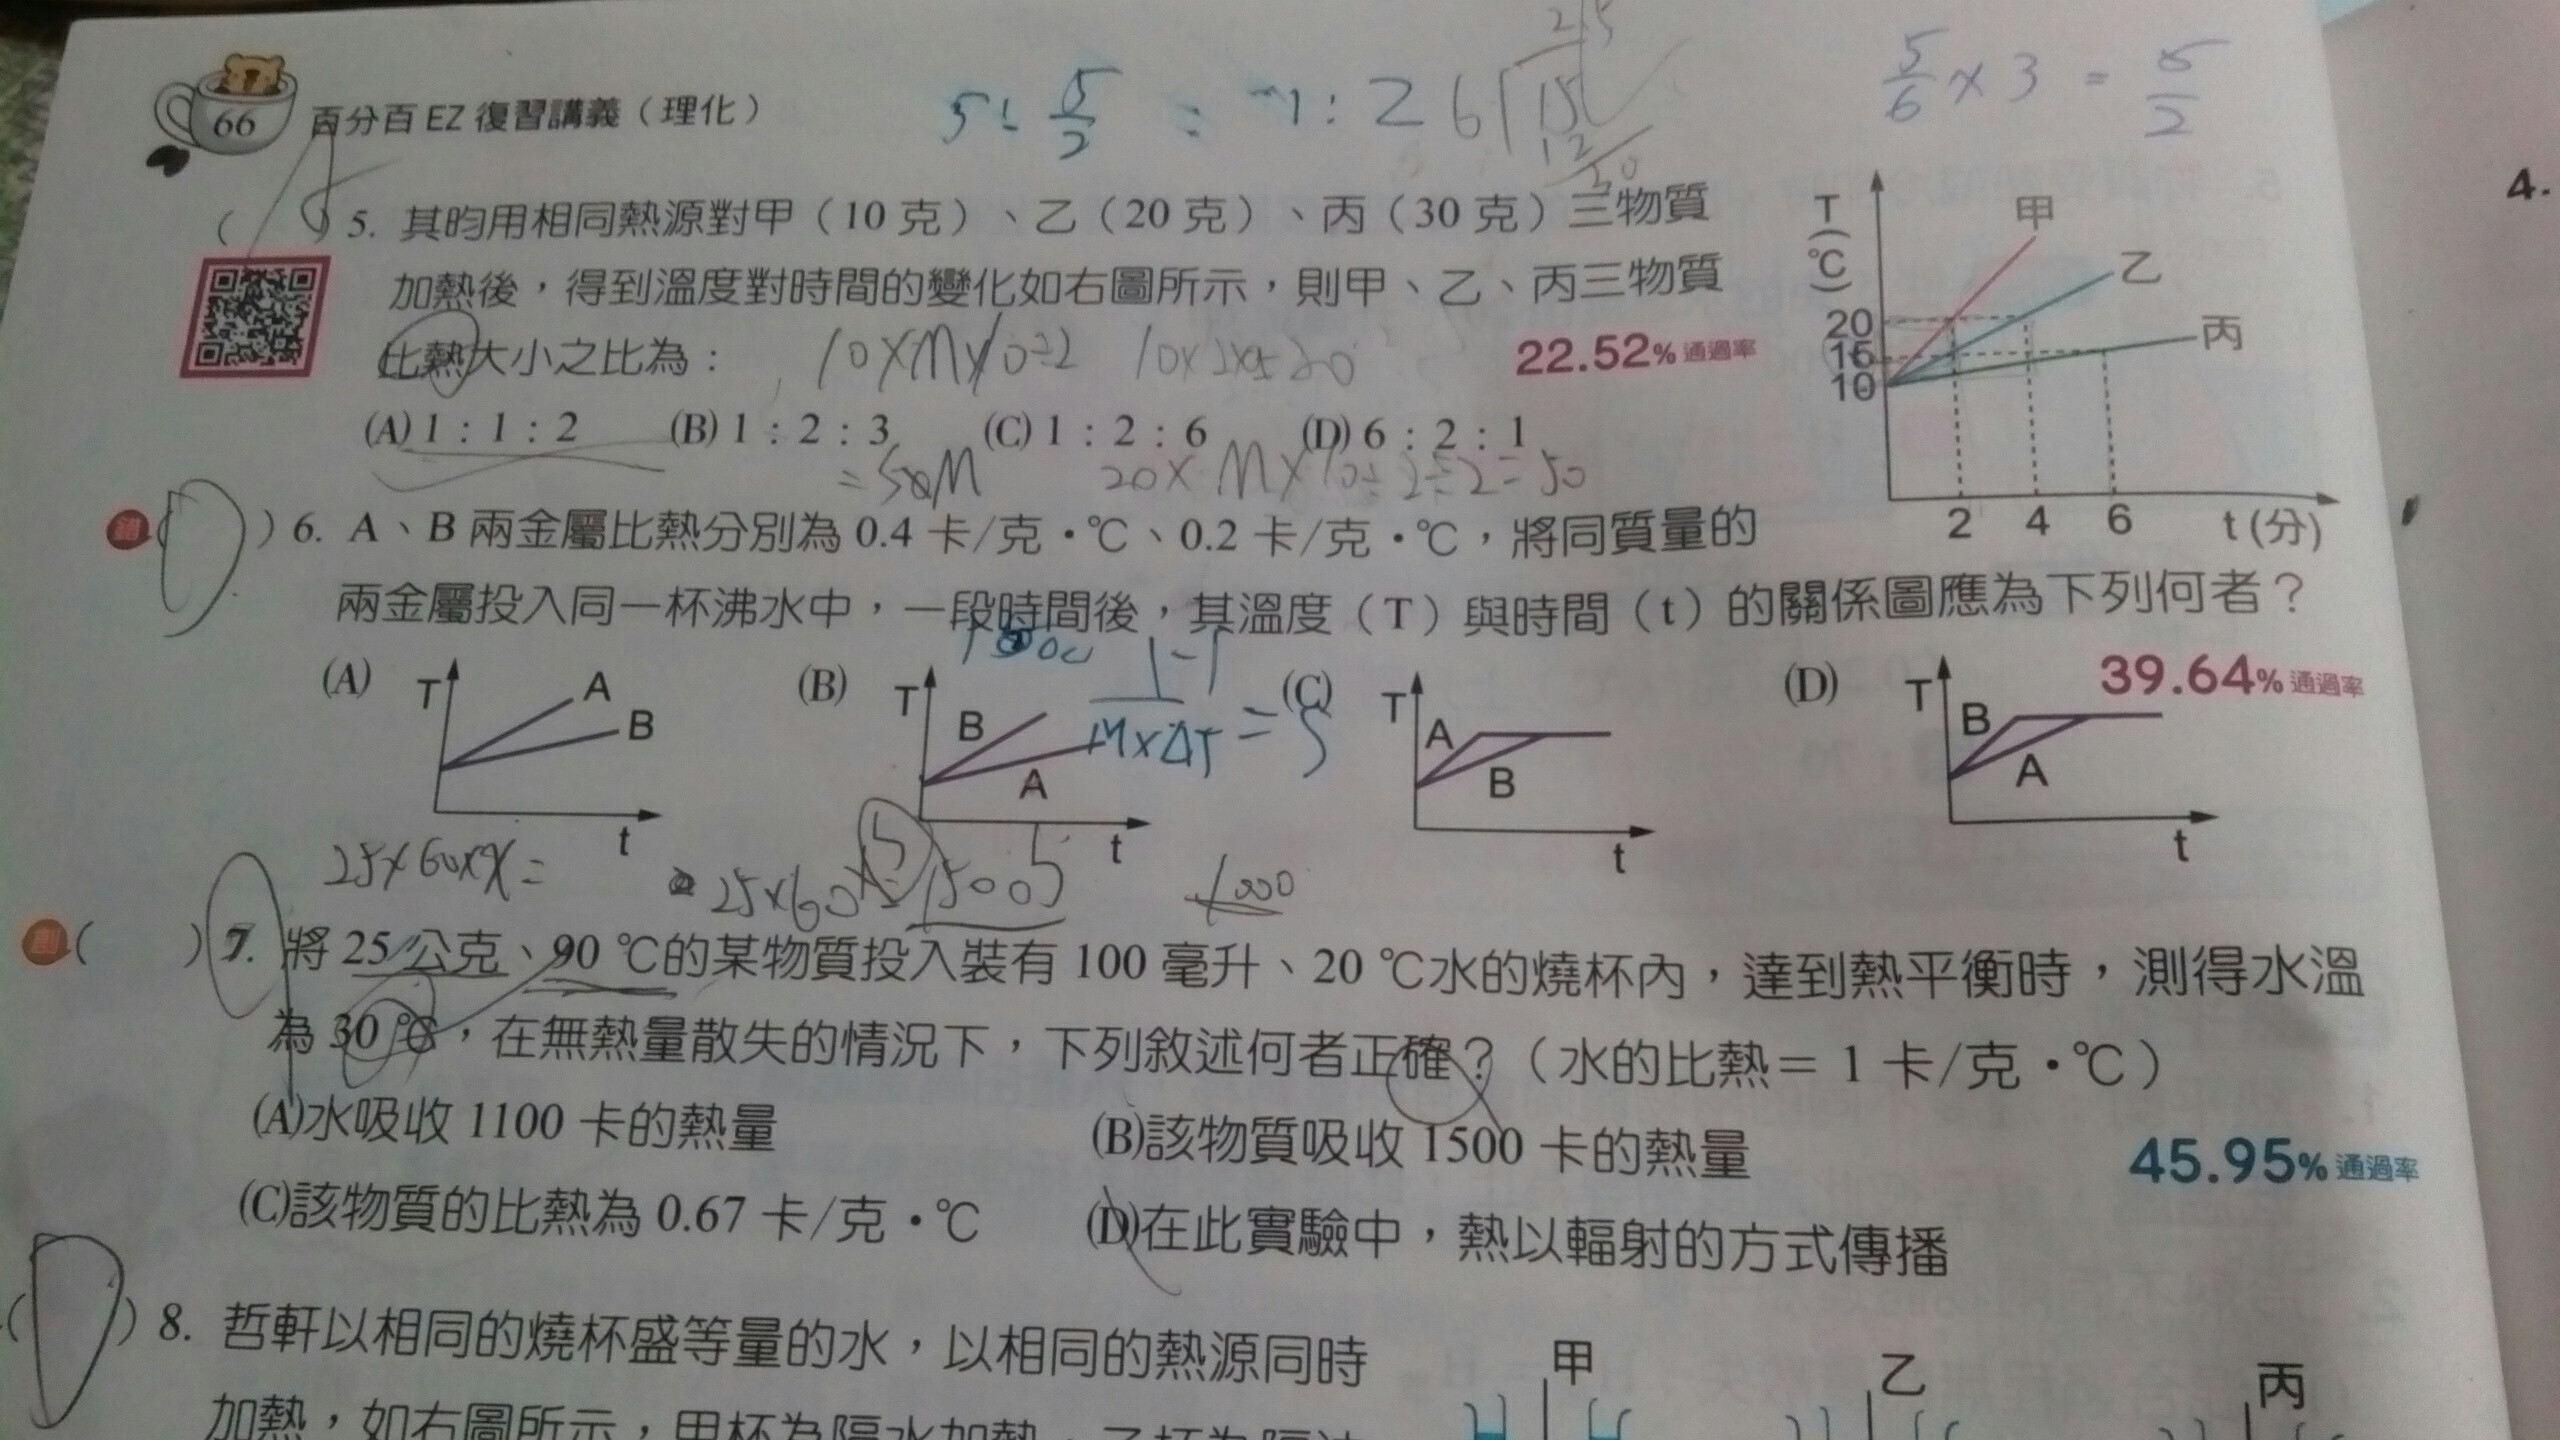 66 百分百 EZ 復習講義（理化）
5 : 5/2 = 1 : 2
5/6 × 3 = 5/2
( ) 5. 其昀用相同熱源對甲（10 克）、乙（20 克）、丙（30 克）三物質
加熱後，得到溫度對時間的變化如右圖所示，則甲、乙、丙三物質
比熱大小之比為：
22.52% 通過率
(A) 1：1：2 (B) 1：2：3 (C) 1：2：6 (D) 6：2：1
T(℃)
甲
乙
丙
20
15
10
2 4 6 t (分)
錯 ( ) 6. A、B 兩金屬比熱分別為 0.4 卡/克・℃、0.2 卡/克・℃，將同質量的
兩金屬投入同一杯沸水中，一段時間後，其溫度（T）與時間（t）的關係圖應為下列何者？
39.64% 通過率
(A) T A B t
(B) T B A t
(C) T A B t
(D) T B A t
25×60×X=
1000
創 ( ) 7. 將 25 公克、90 ℃的某物質投入裝有 100 毫升、20 ℃水的燒杯內，達到熱平衡時，測得水溫
為 30 ℃，在無熱量散失的情況下，下列敘述何者正確？（水的比熱＝ 1 卡/克・℃）
(A)水吸收 1100 卡的熱量 (B)該物質吸收 1500 卡的熱量
45.95% 通過率
(C)該物質的比熱為 0.67 卡/克・℃ (D)在此實驗中，熱以輻射的方式傳播
( ) 8. 哲軒以相同的燒杯盛等量的水，以相同的熱源同時
甲 乙 丙
4.